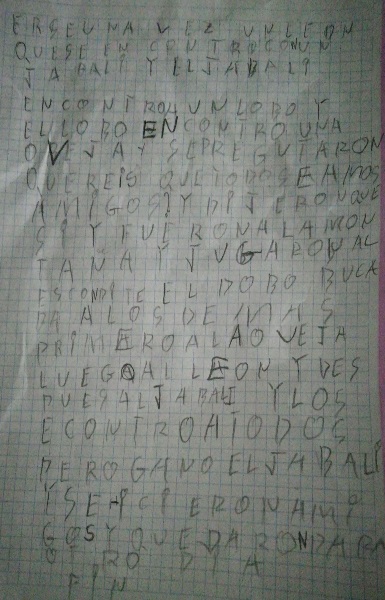 ERSE UNA VEZ UN LEON
QUE SE EN CONTRO CON UN
JABALI Y EL JABALI
ENCONTRO A UN LOBO Y
EL LOBO EN CONTRO UNA
OVEJA Y SE PREGUTARON
QUEREIS QUE TODOS SEAMOS
AMIGOS Y DIJERON QUE
SI Y FUERON A LA MON
TAÑA Y JUGARON AL
ESCONDITE EL DOBO BUCA
BA A LOS DE MAS
PRIMERO A LA OVEJA
LUEGO AL LEON Y DES
PUES AL JABALI Y LOS
ECONTRO A TODOS
PERO GANO EL JABALI
Y SE HICIERON AMI
GOS Y QUEDARON PARA
OTRO DIA
FIN